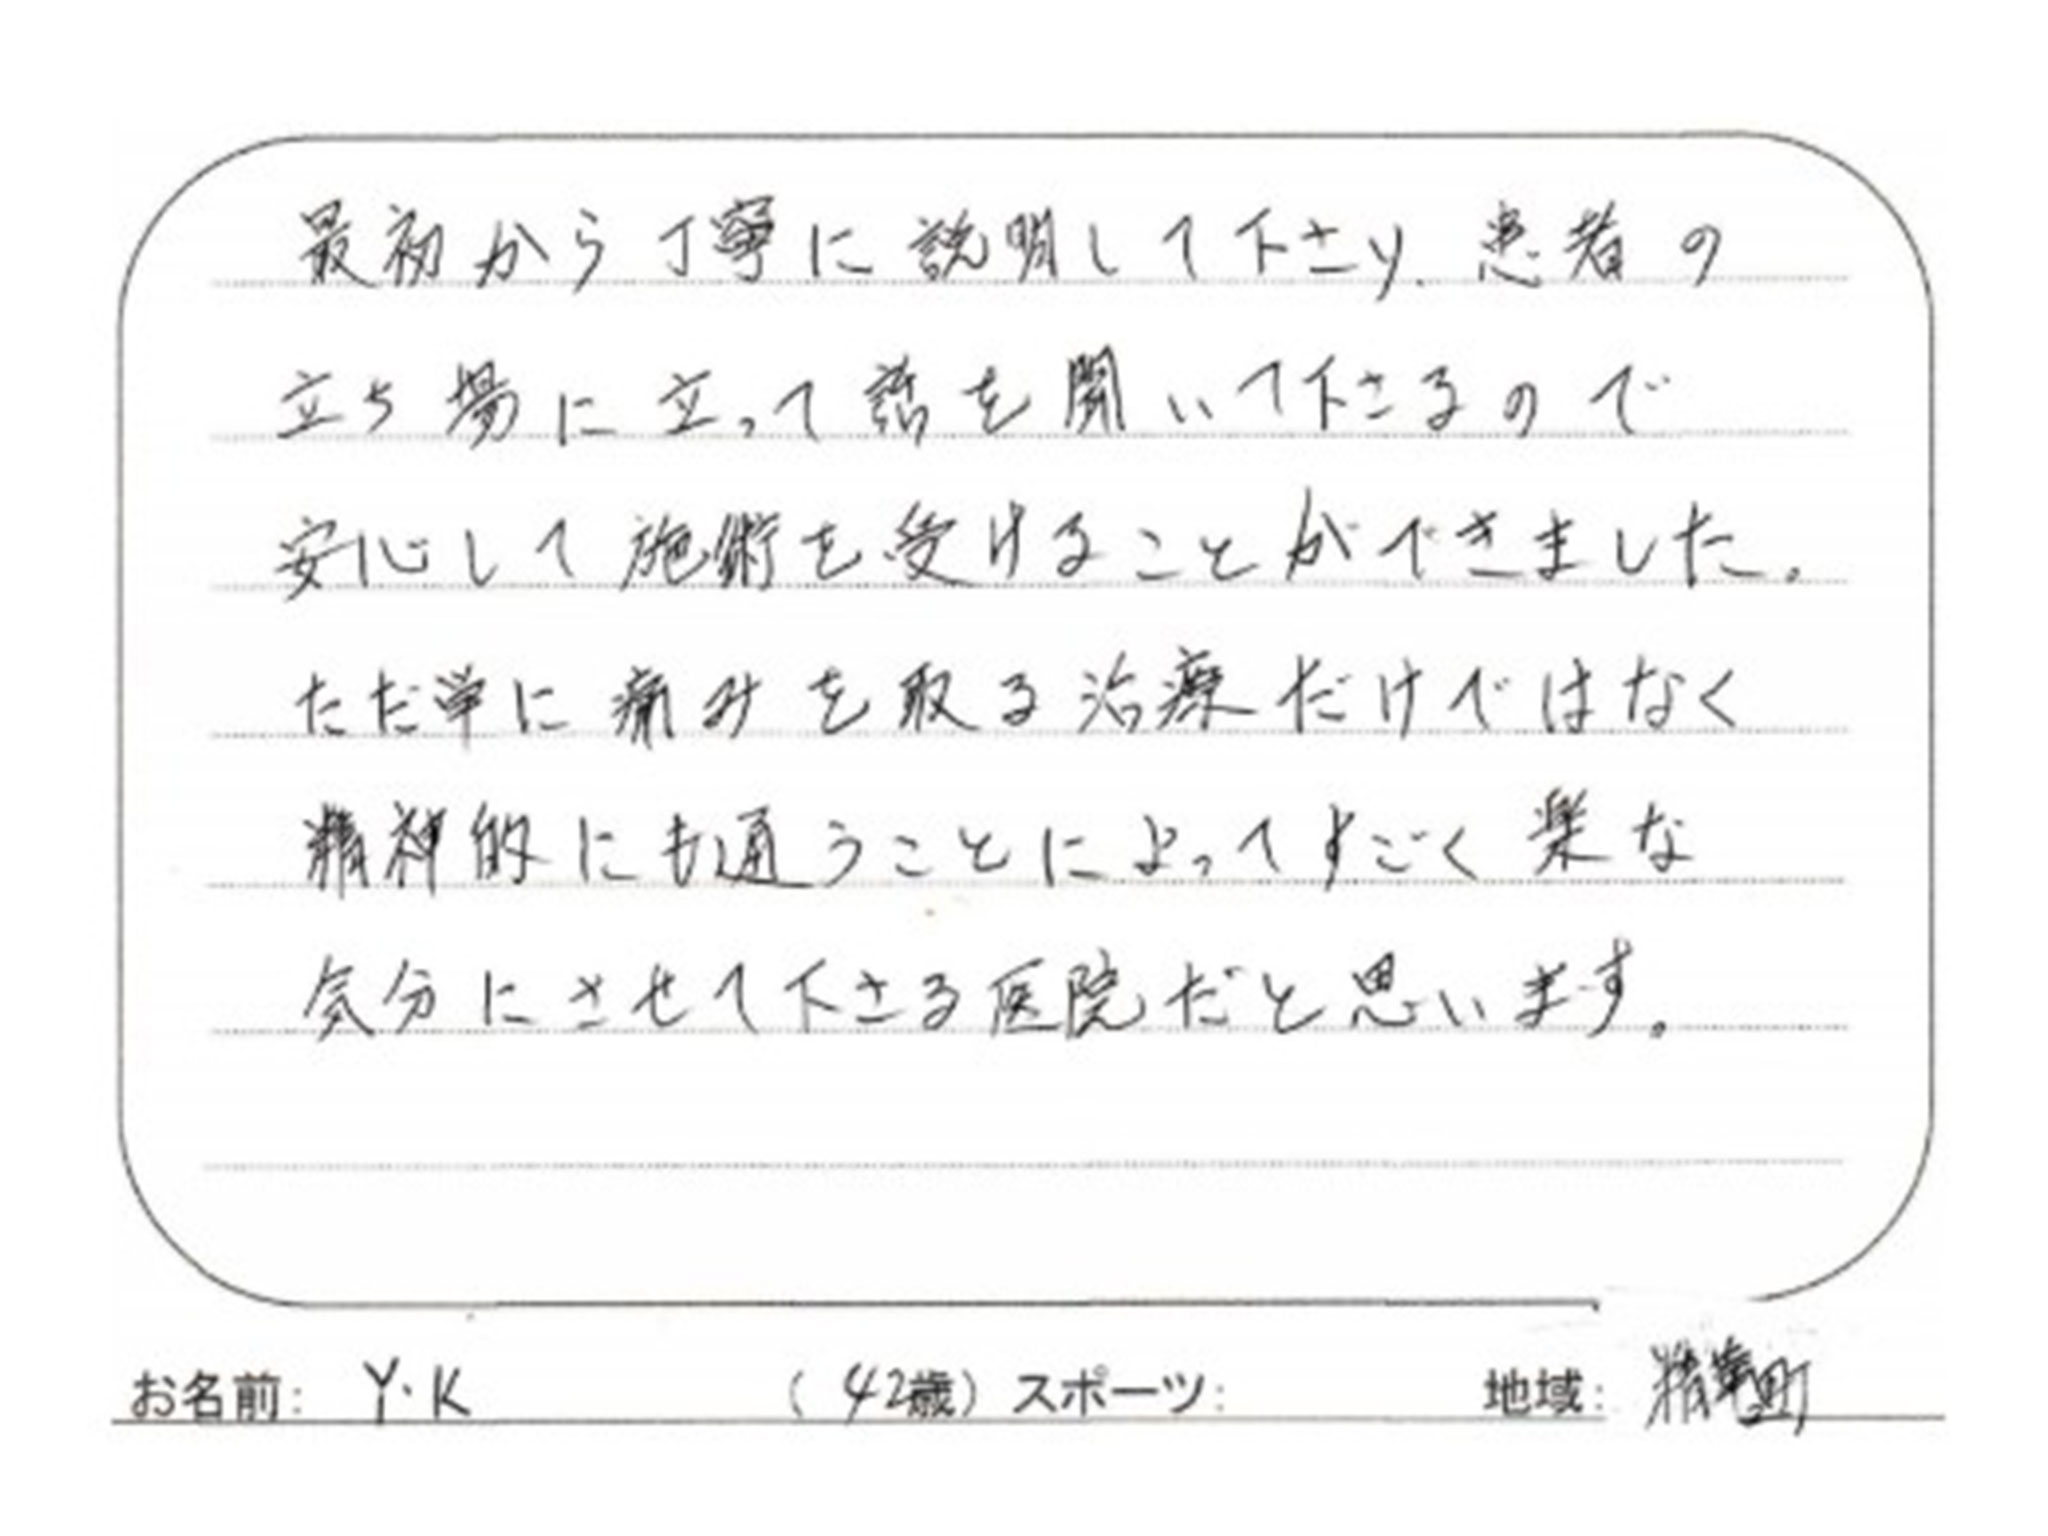 最初から丁寧に説明して下さり、患者の
立ち場に立って話を聞いて下さるので
安心して施術を受けることができました。
ただ単に痛みを取る治療だけではなく
精神的にも通うことによってすごく楽な
気分にさせて下さる医院だと思います。
お名前: Y・K (42歳) スポーツ: 地域: 精華町